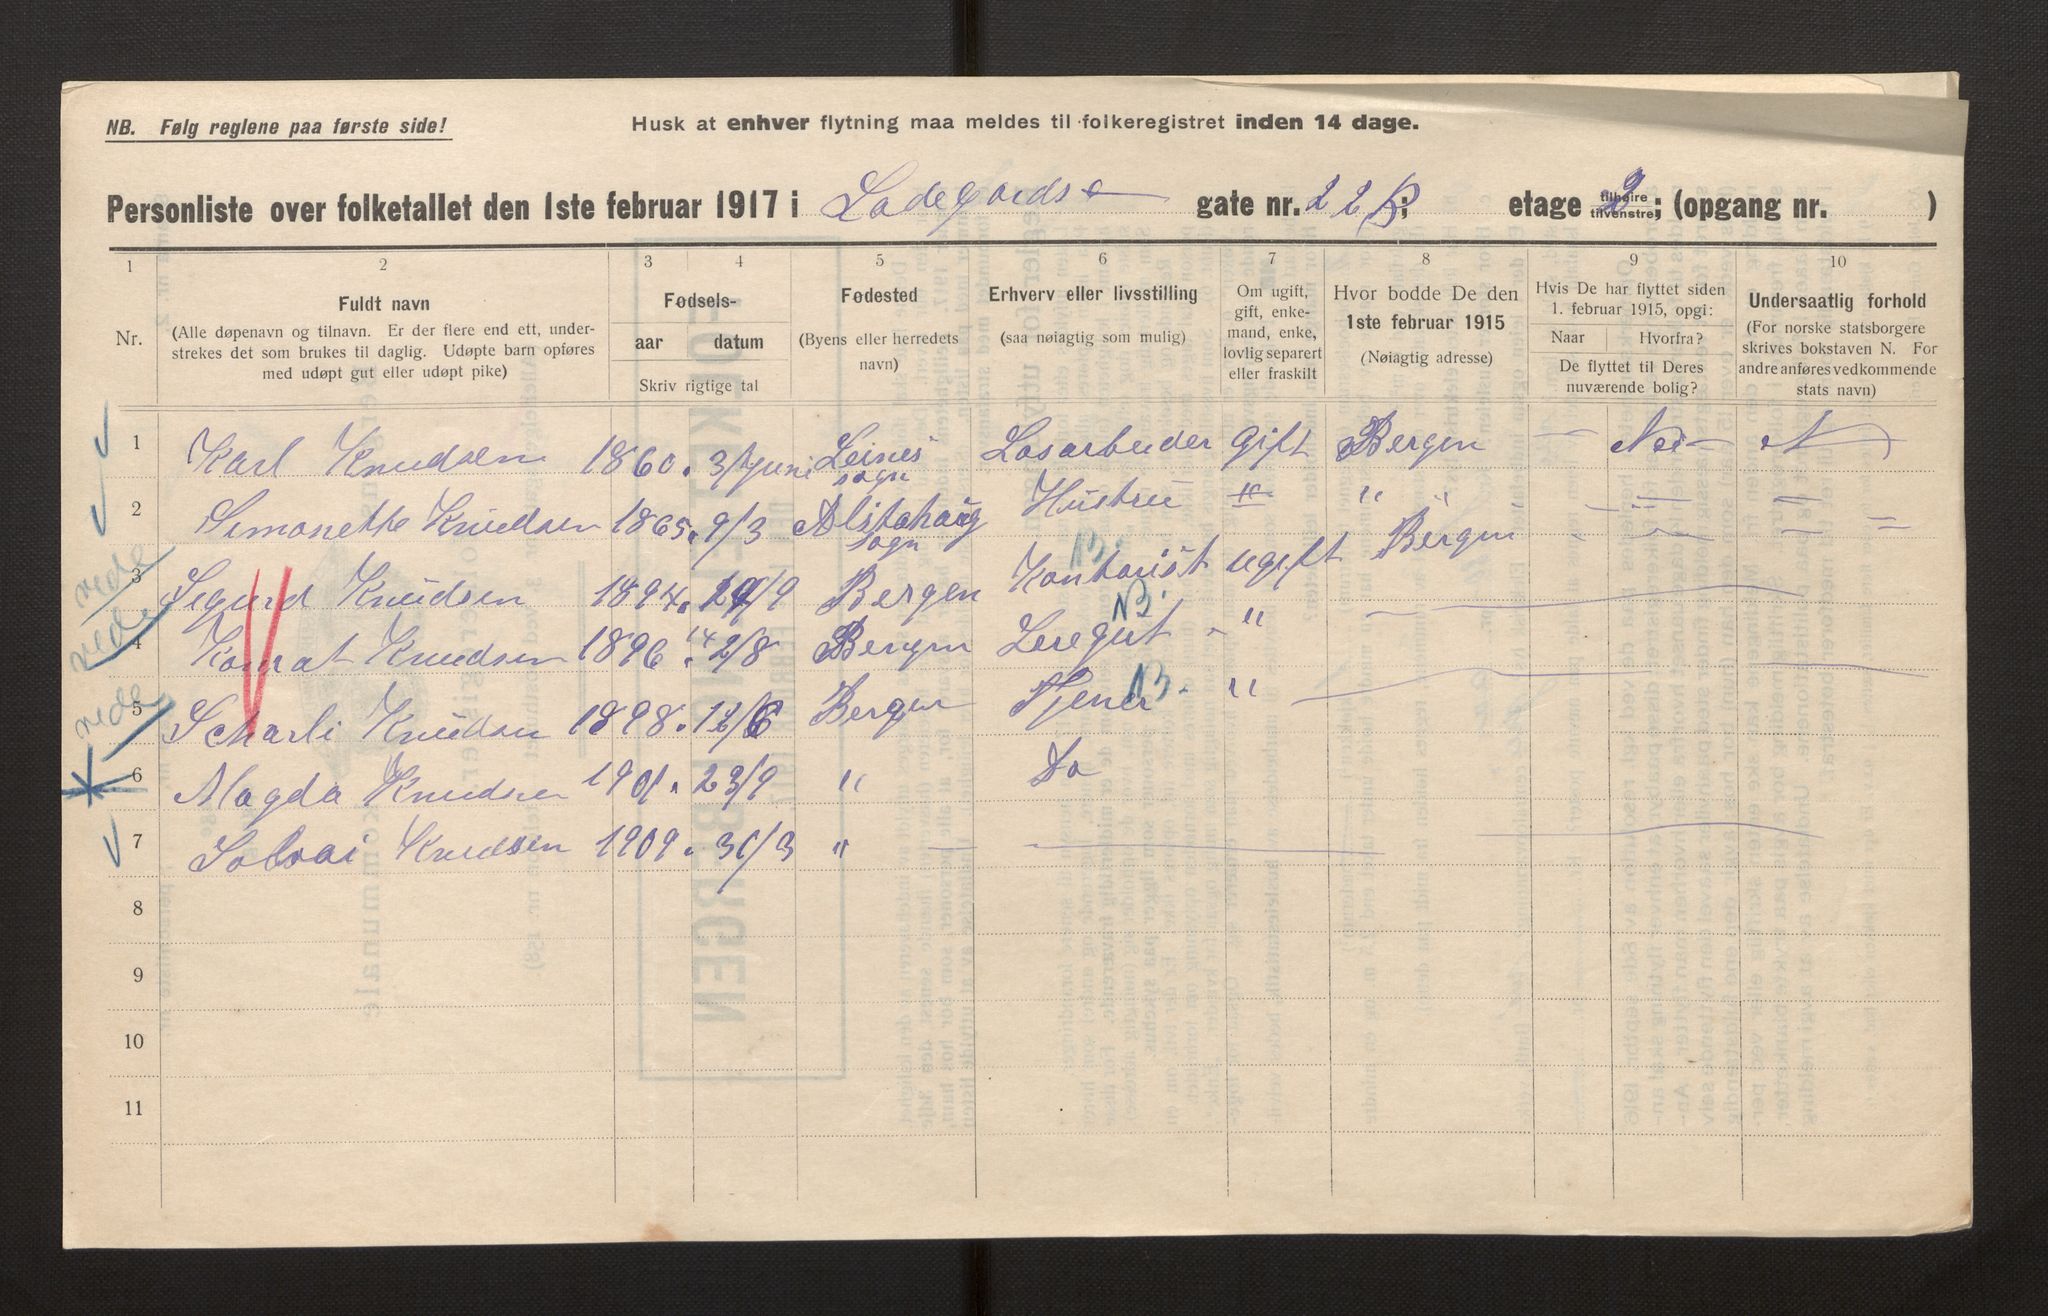 NB. Følg reglene paa første side!
Husk at enhver flytning maa meldes til folkeregistret inden 14 dage.
Personliste over folketallet den 1ste februar 1917 i Ladegords gate nr. 22 B; etage 2 tilhøire tilvenstre; (opgang nr. )
1 2 3 4 5 6 7 8 9 10
Nr.
Fuldt navn
(Alle døpenavn og tilnavn. Er der flere end ett, under-
strekes det som brukes til daglig. Udøpte barn opføres
med udøpt gut eller udøpt pike)
Fødsels-
aar datum
Skriv rigtige tal
Fødested
(Byens eller herredets
navn)
Erhverv eller livsstilling
(saa nøiagtig som mulig)
Om ugift,
gift, enke-
mand, enke,
lovlig separert
eller fraskilt
Hvor bodde De den
1ste februar 1915
(Nøiagtig adresse)
Hvis De har flyttet siden
1. februar 1915, opgi:
Naar Hvorfra?
De flyttet til Deres
nuværende bolig?
Undersaatlig forhold
(For norske statsborgere
skrives bokstaven N. For
andre anføres vedkommende
stats navn)
1 Karl Knudsen 1860. 3/juni Leines sogn Losarbeider gift Bergen — Nei — N
2 Simonette Knudsen 1865. 9/3 Alstahaug sogn Hustru " " — " — "
rede 3 Sigurd Knudsen 1894. /9 Bergen Kontorist B. ugift Bergen " " —
rede 4 Konrat Knudsen 1896. 14 2/8 Bergen Leregut NB. "
rede 5 Scharli Knudsen 1898. 12/6 Bergen Tjener NB. "
6 Magda Knudsen 1901. 23/9 " Do
7 Solvai Knudsen 1909. 31/3 " —
8
9
10
11